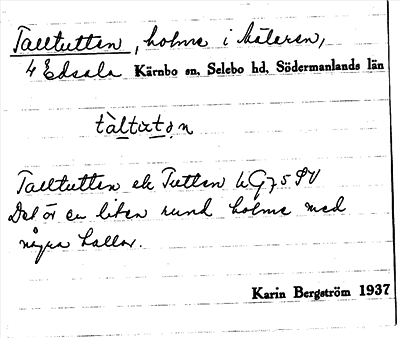 Talltutten, holme i Mälaren,
4 Edsala Kärnbo sn, Selebo hd, Södermanlands län
tàltut:n
Talltutten el. Tutten
Det är en liten rund holme med
några hallar.
Karin Bergström 1937